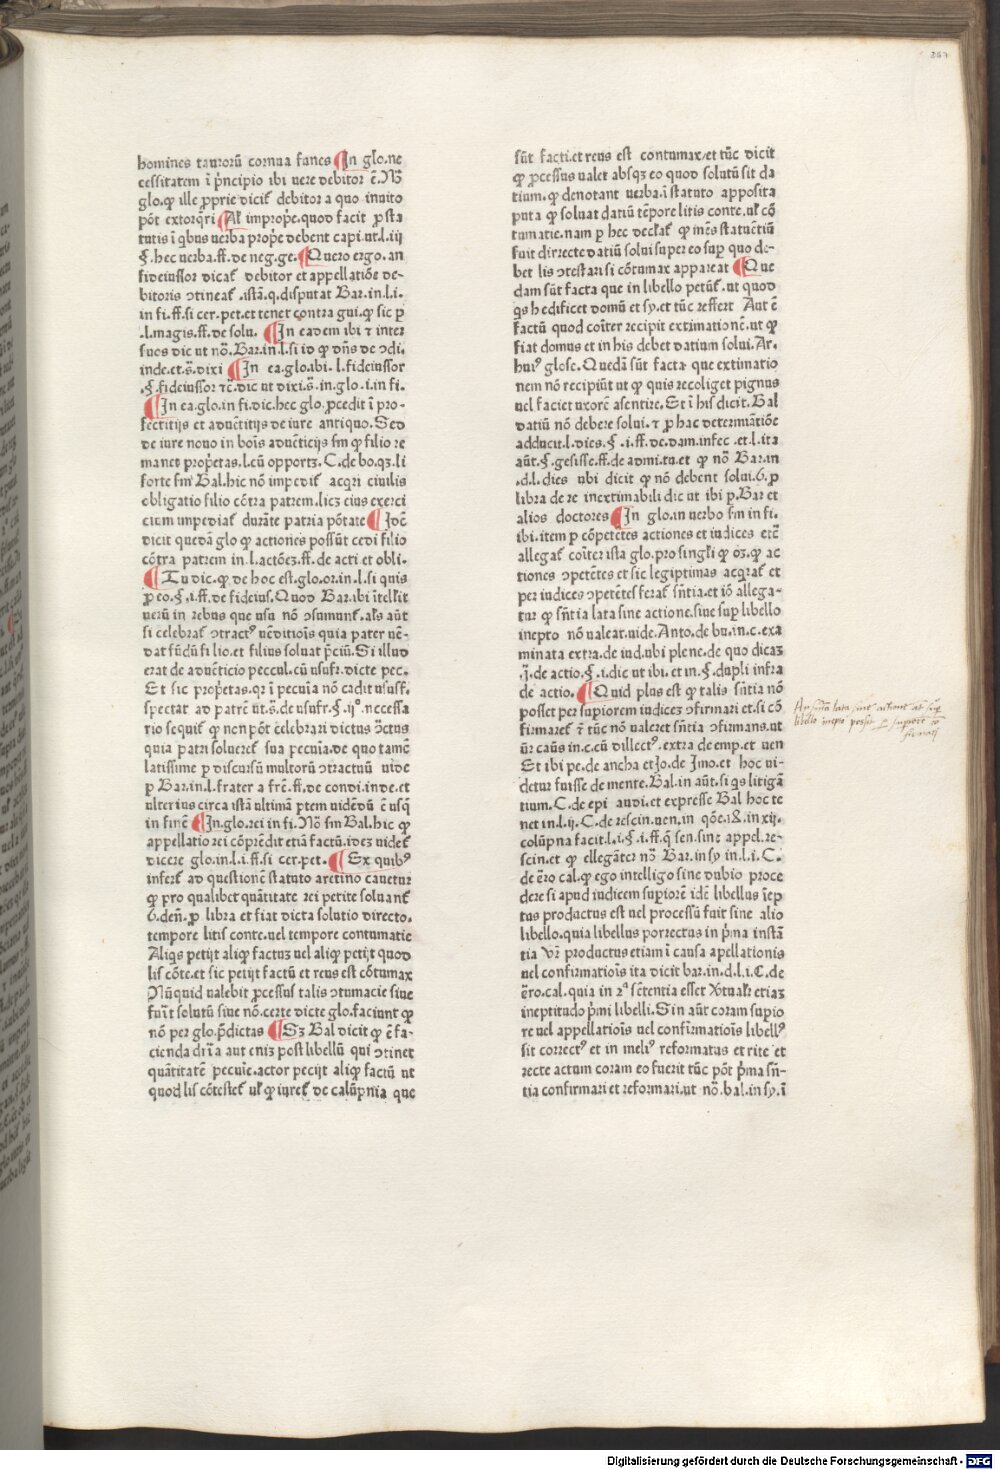 homines tauroꝝ cornua fanes ¶ In glo.ne
cessitatem ĩ pͥncipio ibi uere debitor ẽ.Nõ
glo.ꝙ ille ꝓprie dicit̃ debitor a quo inuito
põt extorq̃ri ¶ Al̃ imprope.quod facit ꝓ sta
tutis ĩ qͥbus uerba prope debent capi.ut.l.iij
§.hec uerba.ff.de neg.ge. ¶ Quero ergo.an
fideiussor dicat̃ debitor et appellatiõe de-
bitoris ↄtineat̃.istã.q.disputat Bar.in.l.i.
in fi.ff.si cer.pet.et tenet contra gui.ꝙ sic ꝑ
.l.magis.ff.de solu. ¶ In eadem ibi ⁊ inter
suos dic ut nõ.Bar.in.l.si id ꝙ dñs de ↄdi.
inde.et.s̃.dixi ¶ In ea.glo.ibi.l.fideiussor
.§.fideiussor ⁊c̃.dic ut dixi.s̃.in.glo.i.in fi.
¶ In ea.glo.in fi.dic.hec glo.ꝓcedit ĩ pro-
fectitijs et aduẽtitijs de iure antiquo.Sed
de iure nouo in boĩs aduẽticijs ẜm ꝙ filio re
manet propetas.l.cũ oportꝫ.C.de bo.qꝫ.li
forte ẜm Bal.hic nõ impedit̃ acqri ciuilis
obligatio filio cõtra patrem.licꝫ eius exerci
cium impediat̃ durãte patria põtate ¶ Idẽ
dicit quedã glo ꝙ actiones possũt cedi filio
cõtra patrem in.l.actõeꝫ.ff.de acti et obli.
¶ Tu dic.ꝙ de hoc est.glo.or.in.l.si quis
ꝓ eo.§.i.ff.de fideius.Quod Bar.ibi ĩtellit̃
uerũ in rebus que usu nõ ↄsumunt̃.al̃s aũt
si celebrat̃ ↄtractꝰ uẽditiõis quia pater uẽ-
dat fũdũ filio.et filius soluat p̃ciũ.Si illud
erat de aduẽticio peccul.cũ usufr.dicte pec.
Et sic propetas.qꝛ ĩ pecuĩa nõ cadit ususf.
spectat ad patrẽ ut.s̃.de usufr.§.ijº.necessa
rio sequit̃ ꝙ nen põt celebrari dictus ↄ̃ctus
quia patri solueret̃ sua pecuĩa.de quo tamẽ
latissime ꝑ discursũ multorũ ↄtractuũ uide
ꝑ Bar.in.l.frater a frẽ.ff.de condi.inde.et
ulterius circa istã ultimã ꝑtem uidẽdũ ẽ usqꝫ
in finẽ ¶ In.glo.rei in fi.Nõ ẜm Bal.hic ꝙ
appellatio rei cõprẽdit etiã factũ.ideꝫ uidet̃
dicere glo.in.l.i.ff.si cer.pet. ¶ Ex quibꝰ
infert̃ ad questionẽ statuto aretino cauetur
ꝙ pro qualibet quãtitate rei petite soluant̃
6.deñ.ꝓ libra et fiat dicta solutio directo.
tempore litis conte.uel tempore contumatie
Aliqs petijt aliqͩ factuꝫ uel aliqͩ petijt quod
lis cõte.et sic petijt factũ et reus est cõtumax
Nũquid ualebit ꝓcessus talis ↄtumacie siue
fuĩt solutũ siue nõ.certe dicte glo.faciunt ꝙ
nõ per glo.p̃dictas ¶ Sꝫ Bal dicit ꝙ ẽ fa-
cienda drĩa aut eniꝫ post libellũ qui ↄtinet
quãtitatẽ pecuie.actor pecijt aliqͩ factũ ut
quod lis cõtestet̃ ul̃ ꝙ iuret̃ de calũpnia que
sũt facti.et reus est contumax/et tũc dicit
ꝙ ꝓcessus ualet absqꝫ eo quod solutũ sit da
tium.ꝙ denotant uerba.ĩ statuto apposita
puta ꝙ soluat datiũ tẽpore litis conte.ul̃ cõ
tumatie.nam ꝑ hec declat̃ ꝙ mẽs statuẽtiũ
fuit dirrecte datiũ solui super eo suꝑ quo de-
bet lis ↄtestari si cõtumax appareat ¶ Que
dam sũt facta que in libello petũt̃.ut quod
qs hedificet domũ et sy.et tũc reffert Aut ẽ
factũ quod coĩter recipit extrimationẽ.ut ꝙ
fiat domus et in his debet datium solui.Ar.
huiꝰ glose.Quedã sũt facta que extimatio
nem nõ recipiũt ut ꝙ quis recoliget pignus
uel faciet uxorẽ asentire.Et ĩ his dicit.Bal
datiũ nõ debere solui.⁊ ꝓ hac determiãtiõe
adducit.l.dies.§.i.ff.de.dam.infec.et.l.ita
aũt.§.gesisse.ff.de admi.tu.et ꝙ nõ Bar.in
.d.l.dies ubi dicit ꝙ nõ debent solui.6.ꝓ
libra de re inextimabili dic ut ibi ꝑ.Bar et
alios doctores ¶ In glo.in uerbo ẜm in fi.
ibi.item ꝑ cõpetẽtes actiones et iudices etc̃
allegat̃ coĩter ista glo.pro singl̃i ꝙ oꝫ.ꝙ ac
tiones ↄpetẽtes et sic legiptimas acqrat̃ et
per iudices ↄpetẽtes ferat̃ sñtia.et iõ allega-
tur ꝙ sñtia lata sine actione.siue suꝑ libello
inepto nõ ualeat.uide.Anto.de bu.in.c.exa
minata extra.de iud.ubi plene.de quo dicaꝫ
.j̃.de actio.§.i.dic ut ibi.et in.§.dupli infra
de actio. ¶ Quid plus est ꝙ talis sñtia nõ
posset per supiorem iudiceꝫ ↄfirmari et.si cõ
firmaret̃ ⁊ tũc nõ ualeret sñtia ↄfirmans.ut
ũr caũs in.c.cũ dillectꝰ.extra de emp.et uen
Et ibi pe.de ancha et Jo.de Imo.et hoc ui-
detur fuisse de mente.Bal.in aũt.si qs litigã
tium.C.de epi audi.et expresse Bal hoc te
net in.l.ij.C.de rescin.uen.in qõe.18.in xij.
colũpna facit.l.i.§.i.ff.q̃ sen.sine appel.re-
scin.et ꝙ ellegãter nõ Bar.in sy in.l.i.C.
de ẽro cal.ꝙ ego intelligo sine dubio proce
dere si apud iudicem supiorẽ idẽ libellus ĩep
tus productus est uel processũ fuit sine alio
libello.quia libellus porrectus in pͥma instã
tia Vꝛ productus etiam ĩ causa apellationis
uel confirmatiois ita dicit bar.in.d.l.i.C.de
ẽro.cal.quia in 2ª sẽtentia esset Vͥtualr etiaꝫ
ineptitudo pͥmi libelli.Sin aũt coram supio
re uel appellatiois uel confirmatiois libellꝰ
sit correctꝰ et in meliꝰ reformatus et rite et
recte actum coram eo fuerit tũc põt pͥma sñ-
tia confirmari et reformari.ut nõ.bal.in sy.ĩ
An snĩa lata sine actione
libello inepto possit ꝑ supiorẽ
Digitalisierung gefördert durch die Deutsche Forschungsgemeinschaft - DFG